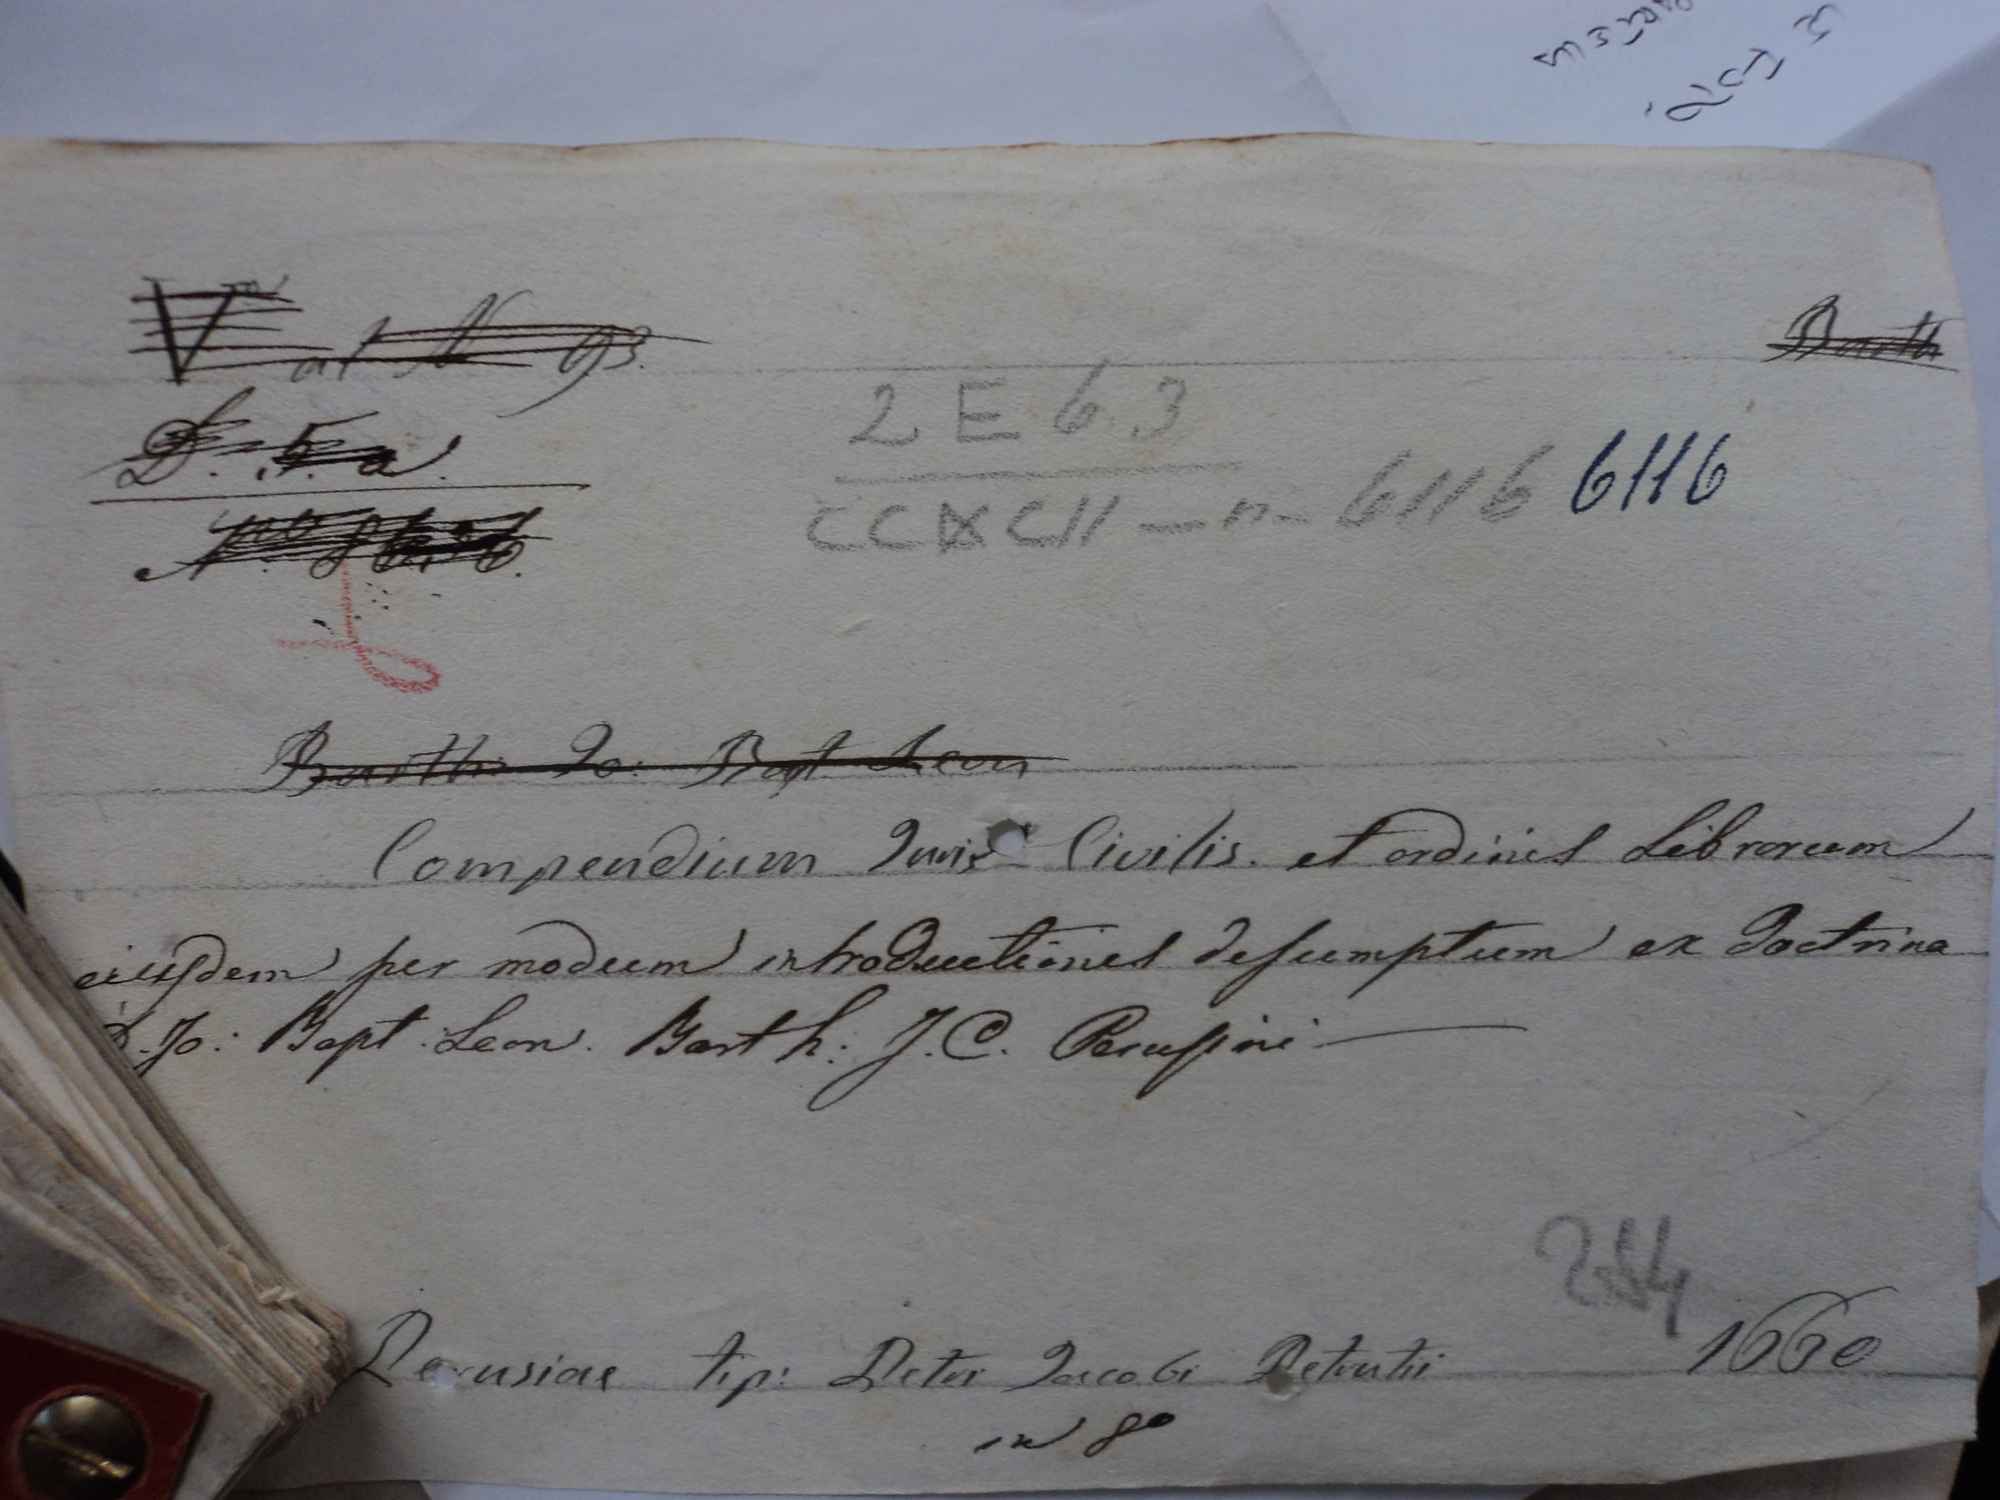 V at N 93.
Barth
D. 5. a.
2 E 6.3
CCXCII — n — 6116 6116
Barth: Jo: Bapt Leon
Compendium Juris Civilis. et ordines Librorum
eiusdem per modum introductiones desumptum ex doctrina
D. Jo: Bapt. Leon. Barth: J. C. Perusini
284
Perusiae tip: Petri Jacobi Petrutii 1660
in 8º